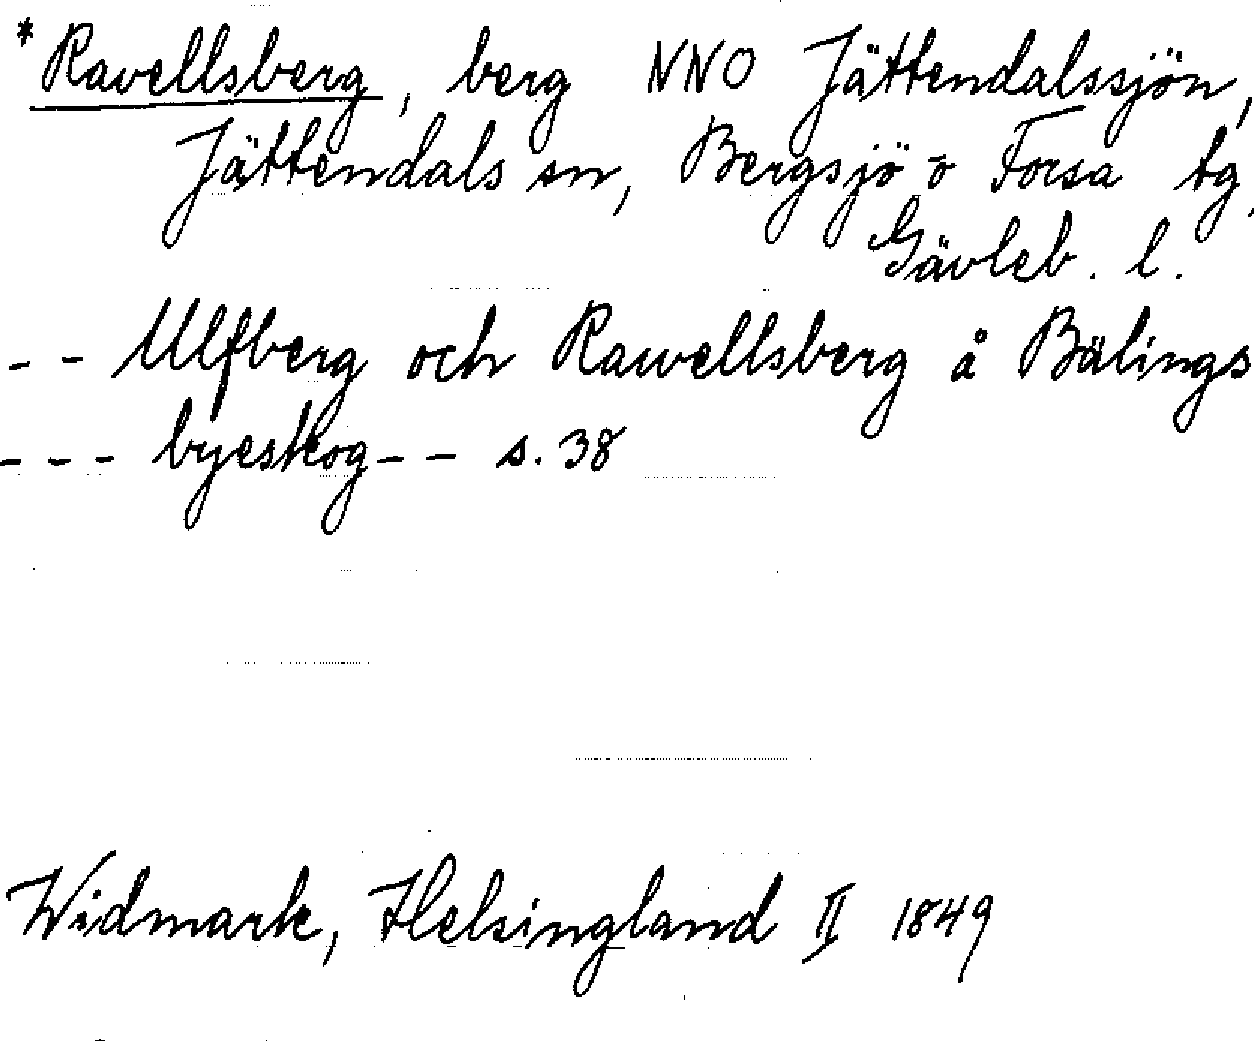 *Ravellsberg, berg NNO Jättendalssjön,
Jättendals sn, Bergsjö o Forsa tg,
Gävleb. l.
- - Ulfberg och Rawellsberg å Bälings
- - - byeskog - - s. 38
Widmark, Helsingland II 1849